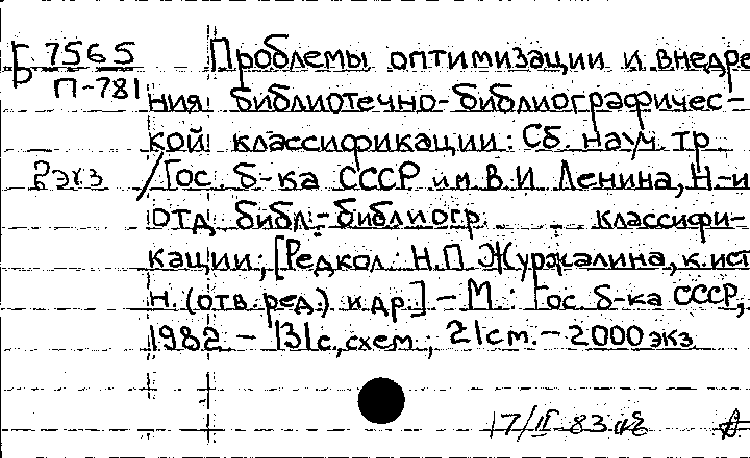 Б 7565 Проблемы оптимизации и внедре
П-781 ния библиотечно-библиографичес-
кой классификации: Сб. науч. тр.
2экз /Гос. б-ка СССР им. В.И. Ленина, Н-и
отд. библ.-библиогр. классифи-
кации; [Редкол.: Н.П. Журжалина, к.ист
н. (отв. ред.) и др.] - М.: Гос. б-ка СССР,
1982. - 131с., схем.; 21см. - 2000 экз.
17/II-83